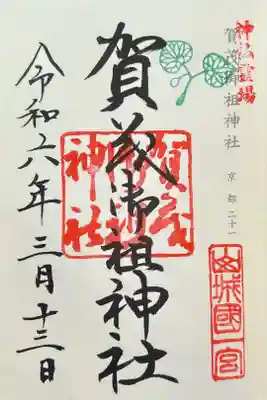 神仏霊場
賀茂御祖神社
京都二十一
山城國一宮
賀茂御祖神社
賀茂
御祖
神社
令和六年三月十三日